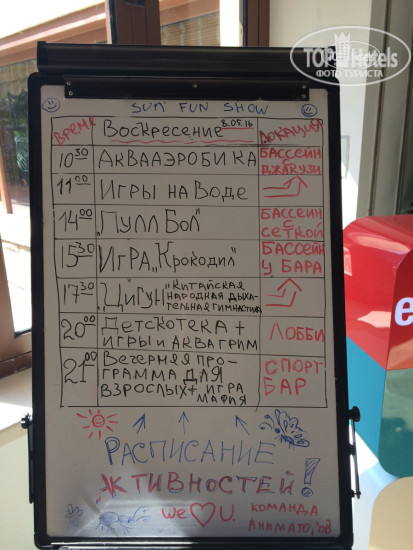 TOP Hotels
ФОТО ТУРИСТА
SUN FUN SHOW
ВРЕМЯ Воскресение 8.05.16 ЛОКАЦИЯ
10 30 АКВААЭРОБИКА БАССЕЙН С ДЖАКУЗИ
11 00 ИГРЫ НА ВОДЕ
14 00 "ПУЛЛ БОЛ" БАССЕЙН С СЕТКОЙ
15 30 ИГРА "КРОКОДИЛ" БАССЕЙН У БАРА
17 30 "ЦИГУН" КИТАЙСКАЯ НАРОДНАЯ ДЫХАТЕЛЬНАЯ ГИМНАСТИКА
20 00 ДЕТСКОТЕКА + ИГРЫ И АКВАГРИМ ЛОББИ
21 00 ВЕЧЕРНЯЯ ПРО-
ГРАММА ДЛЯ
ВЗРОСЛЫХ + ИГРА
МАФИЯ
СПОРТ
БАР
РАСПИСАНИЕ
АКТИВНОСТЕЙ!
we ♡ U.
КОМАНДА
e